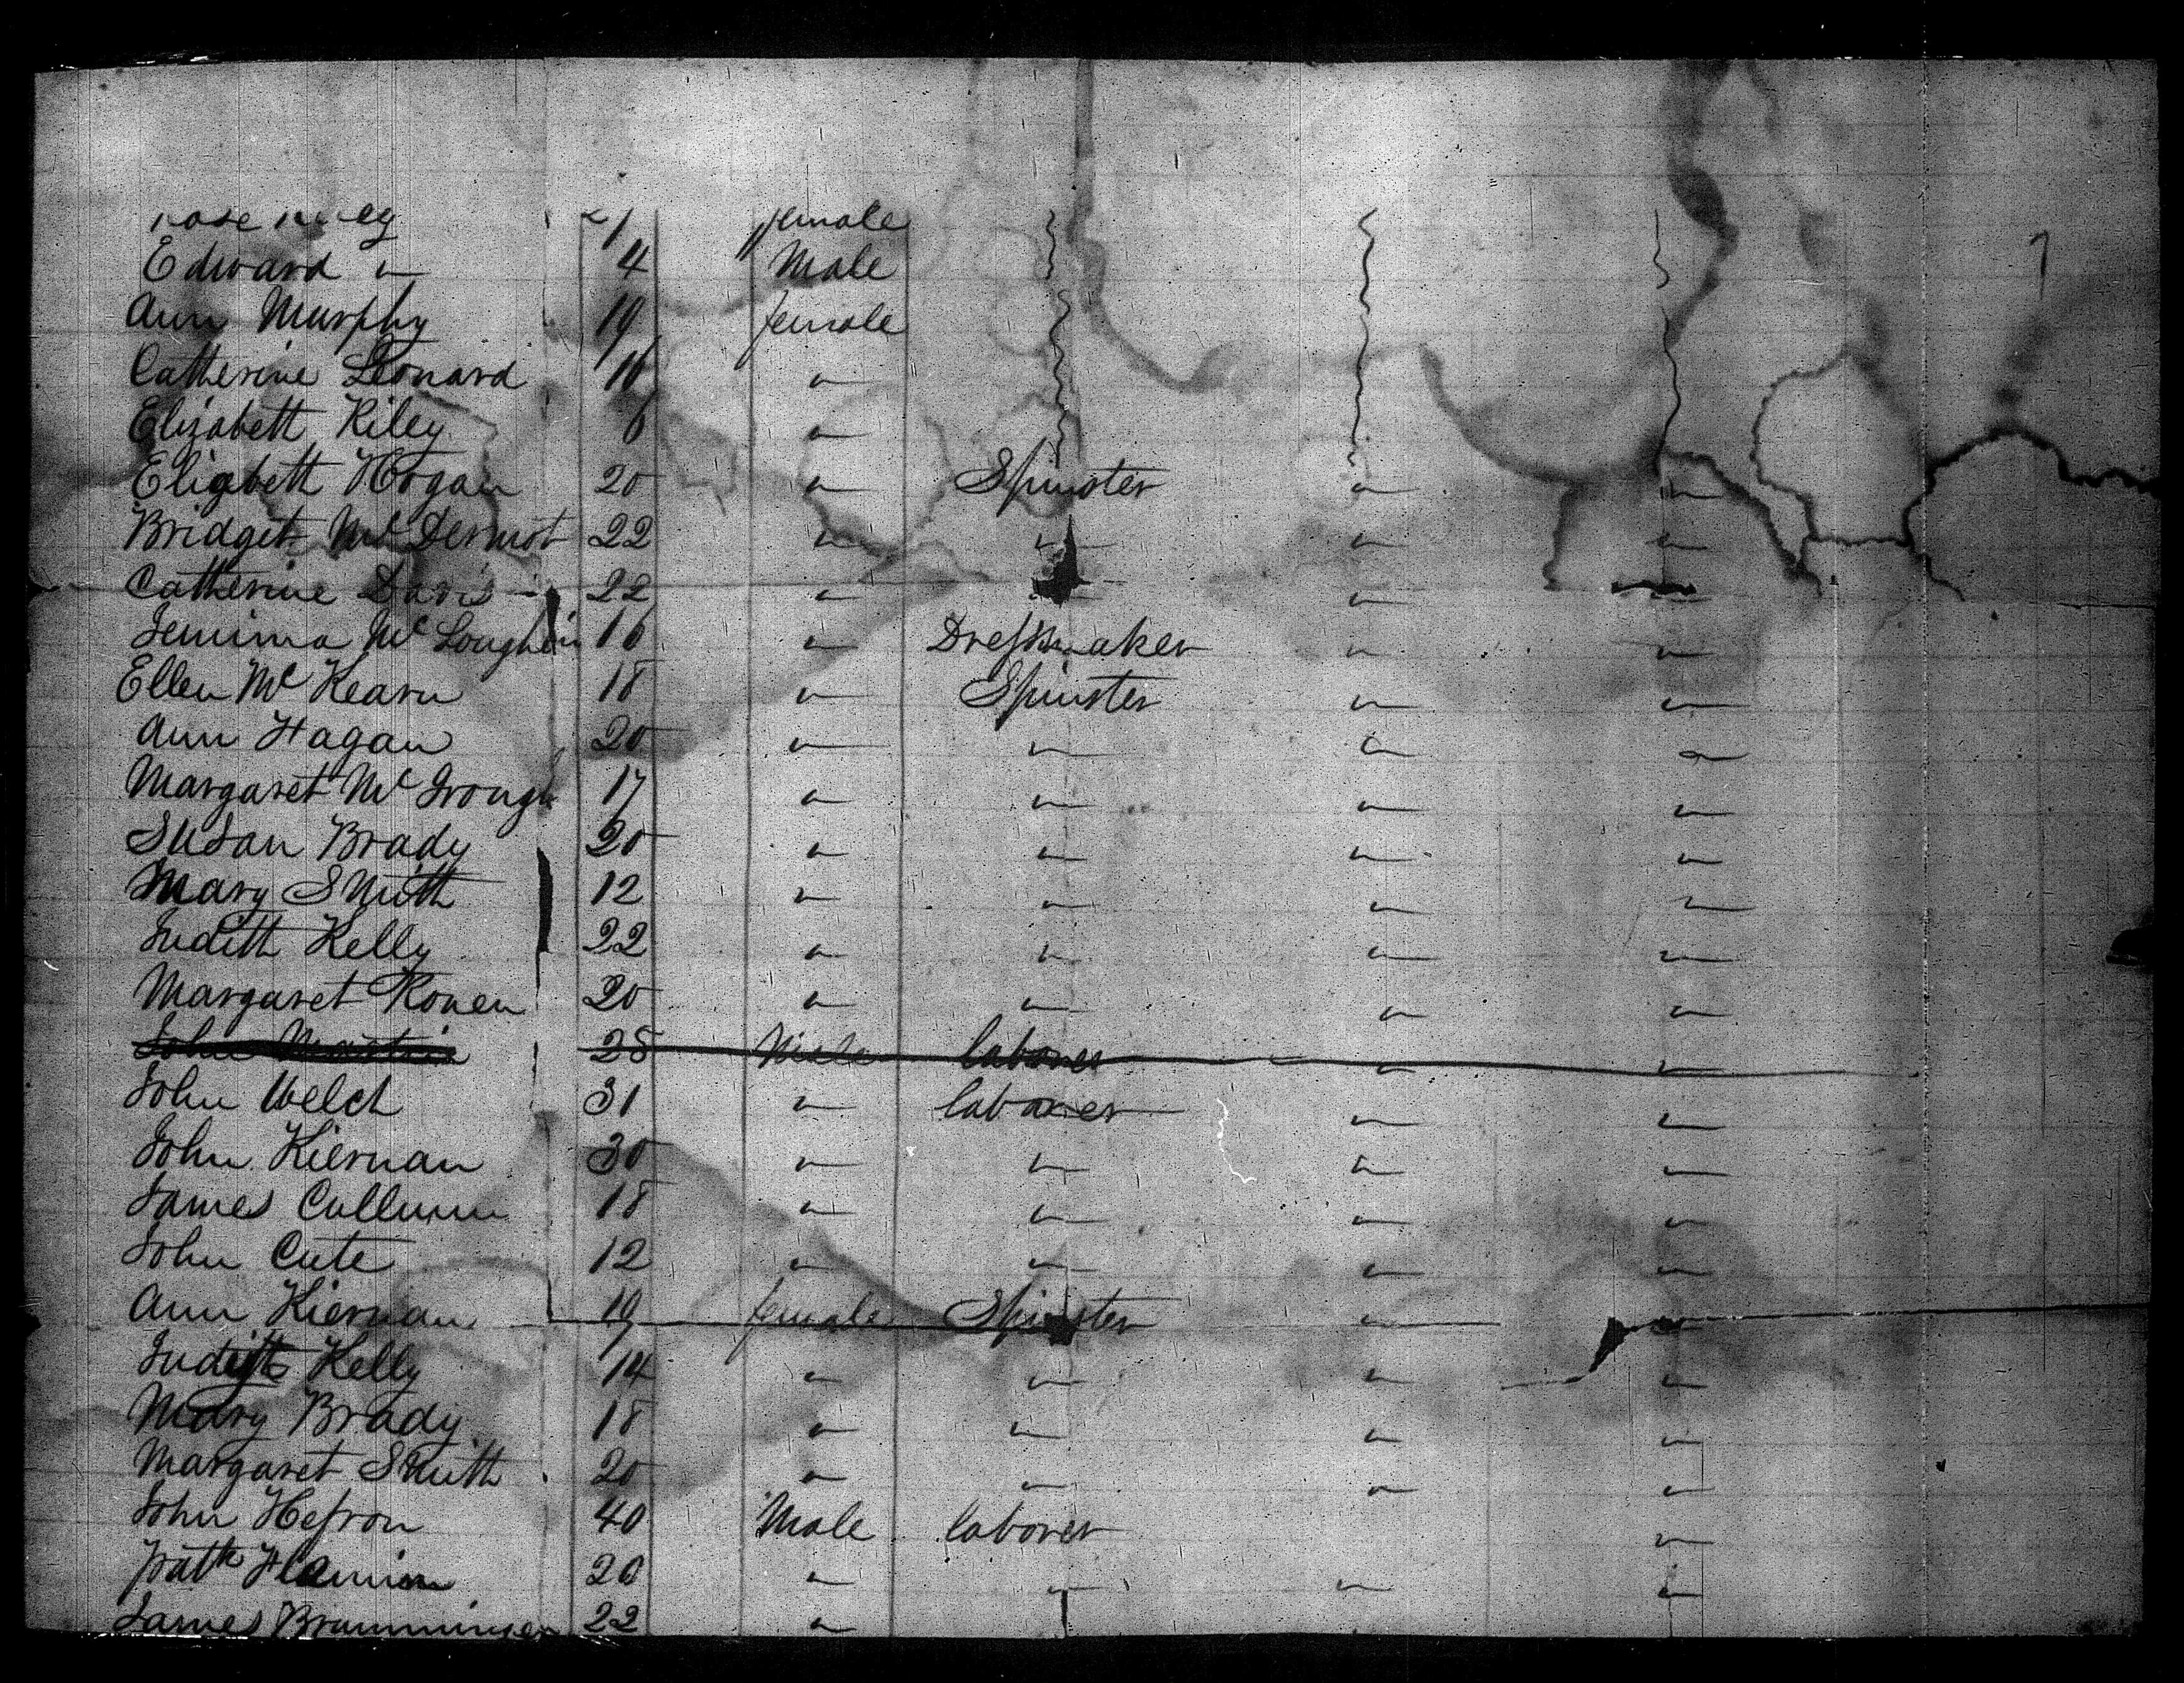 Edward " 4 Male
Ann Murphy 19 female
Catherine Leonard 10 "
Elizabeth Riley 6 "
Elizabeth Hogan 20 " Spinster " "
Bridget McDermot 22 " " " "
Catherine Davis 22 " " "
Jemima McLoughlin 16 " Dressmaker " "
Ellen McKearn 18 " Spinster " "
Ann Hagan 20 " " " "
Margaret Mc 17 " " " "
Susan Brady 20 " " " "
Mary Smith 12 " " " "
Judith Kelly 22 " " " "
Margaret Ronen 20 " " " "
John 28 Male laborer " "
John Welch 31 " laborer " "
John Kiernan 30 " " " "
James Cullum 18 " " " "
John Cute 12 " " " "
Ann Kiernan 19 female Spinster " "
Judith Kelly 14 " " " "
Mary Brady 18 " " " "
Margaret Smith 20 " " " "
John Hefron 40 Male laborer "
Patk 20 " " " "
James 22 "